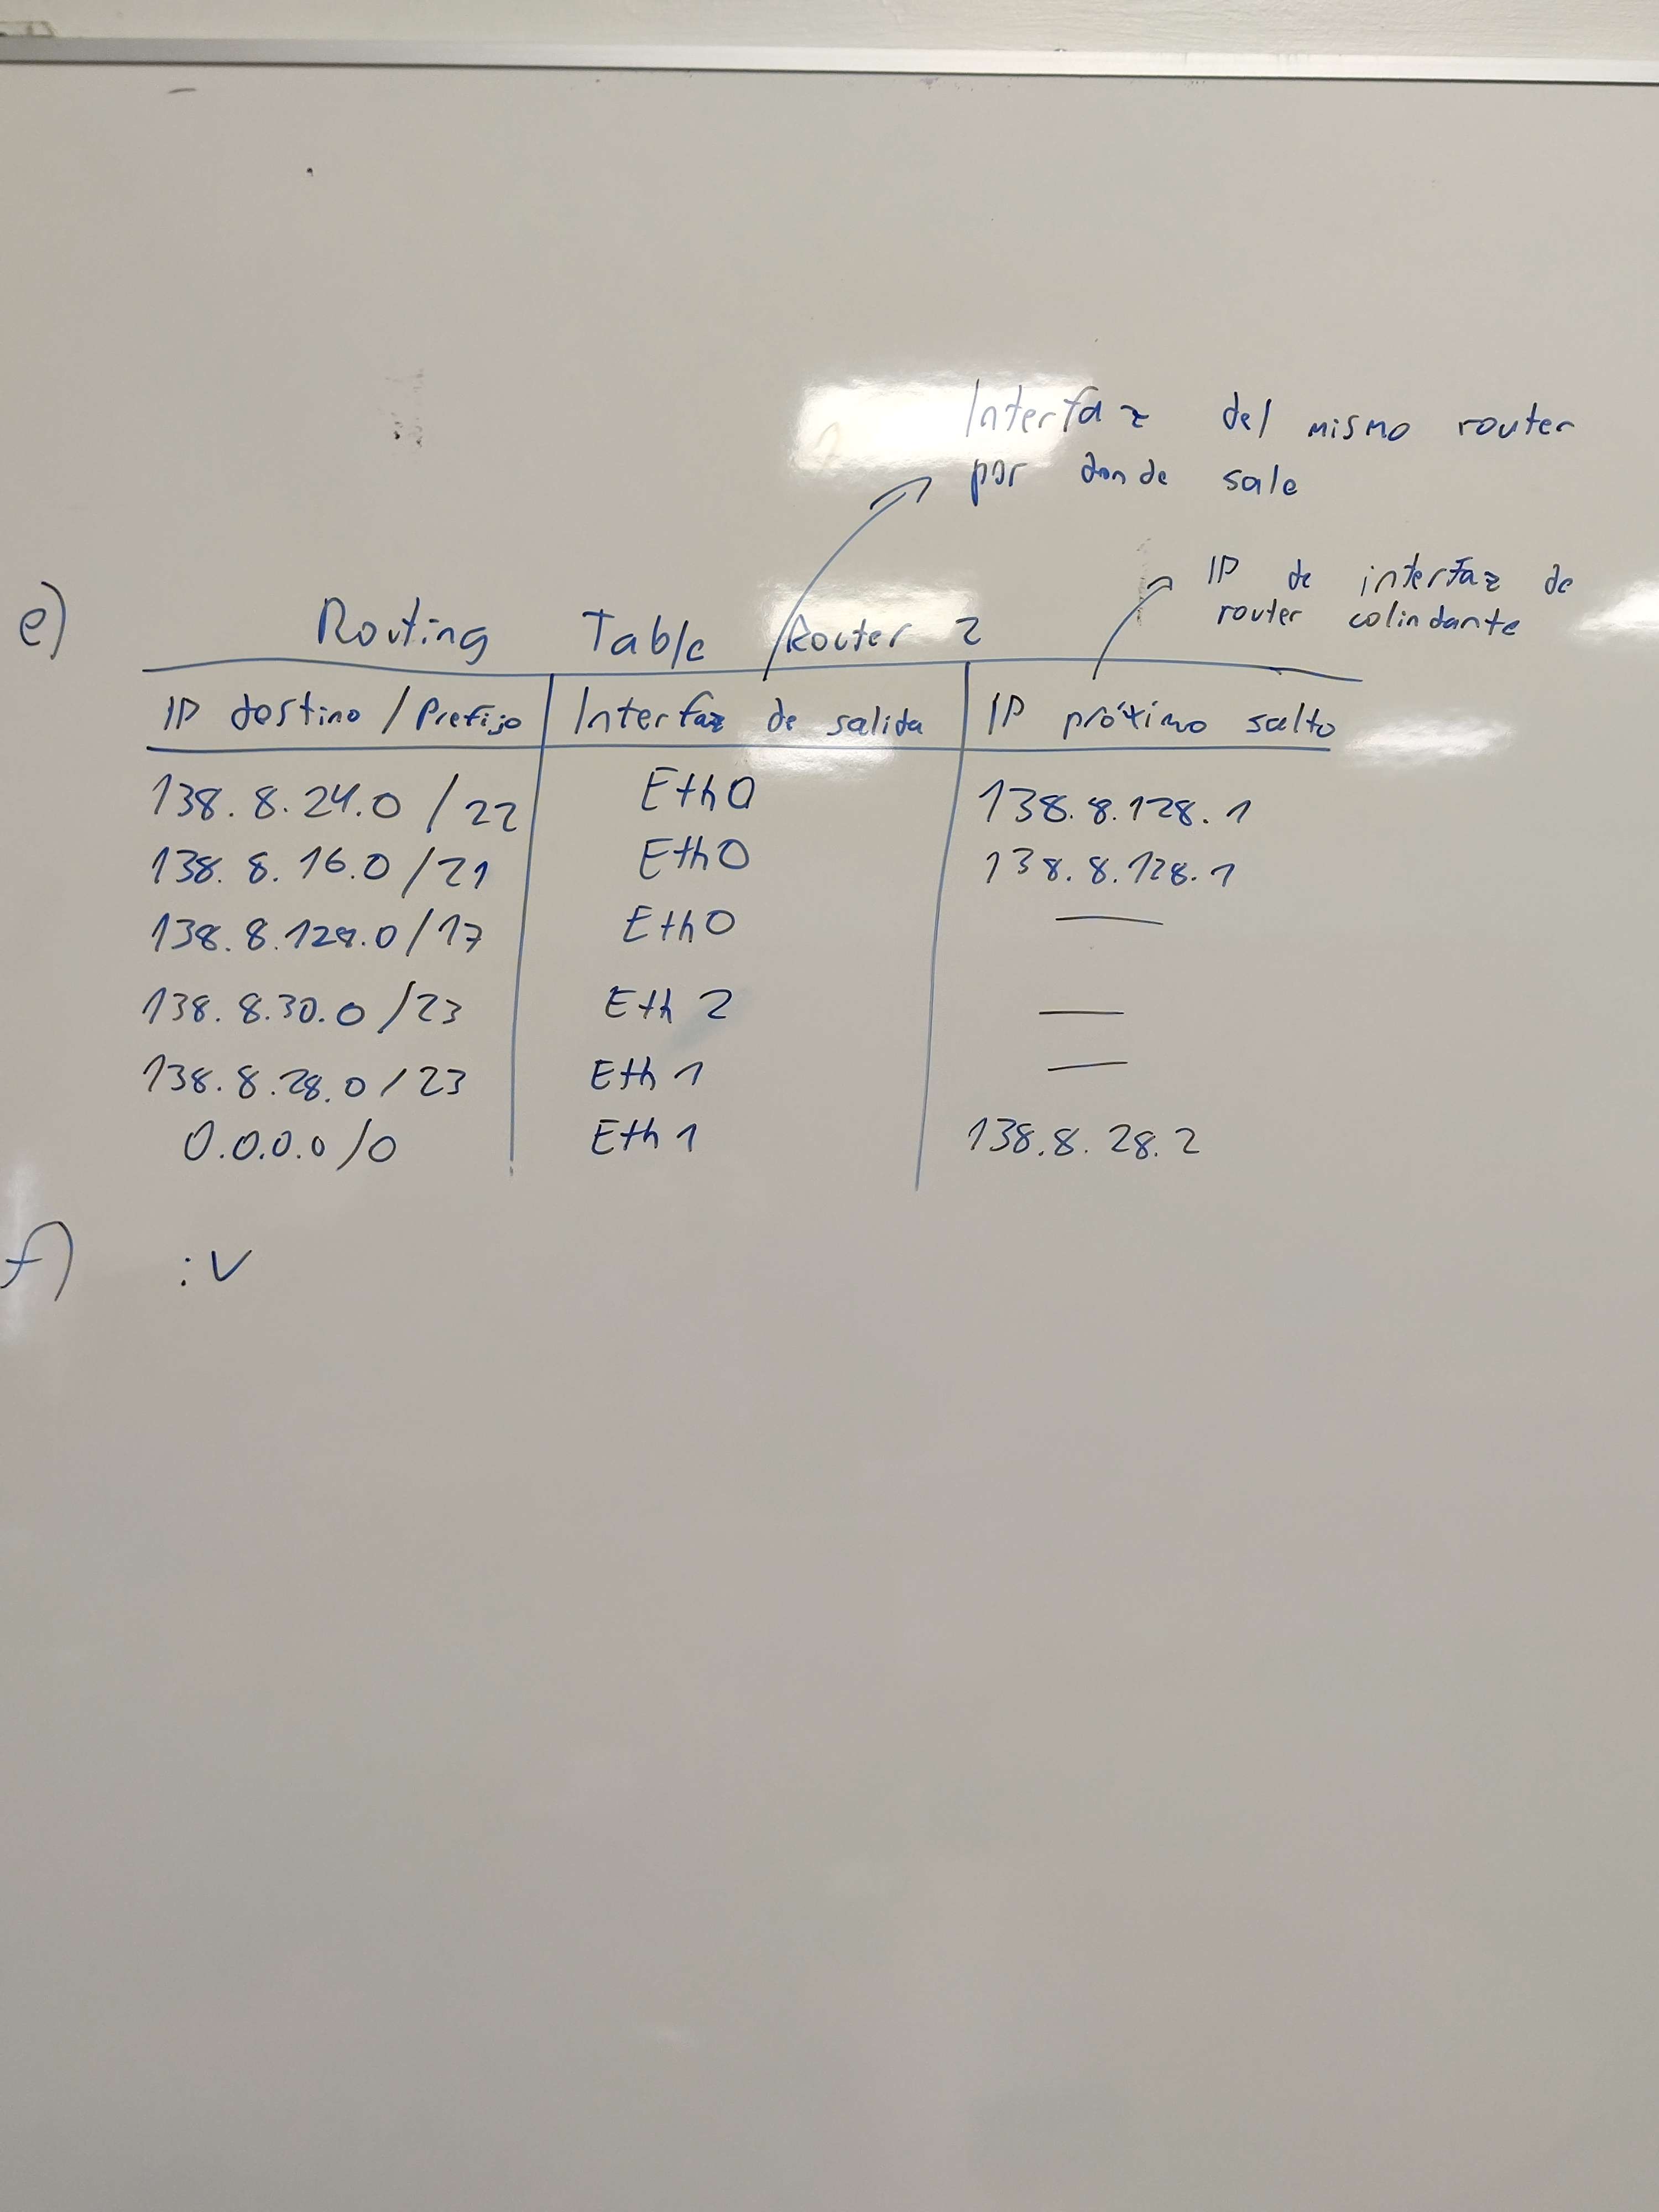 Interfaz del mismo router
por donde sale
IP de interfaz de
router colindante
e) Routing Table Router 2
IP destino / Prefijo Interfaz de salida IP próximo salto
138.8.24.0 /22 Eth0 138.8.128.1
138.8.16.0 /21 Eth0 138.8.128.1
138.8.128.0/17 Eth0 —
138.8.30.0 /23 Eth 2 —
138.8.28.0 / 23 Eth 1 —
0.0.0.0 /0 Eth 1 138.8.28.2
f) :V